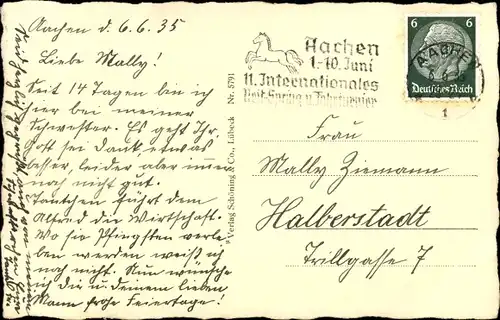 Aachen d. 6.6.35
Liebe Mally!
Seit 14 Tagen bin ich
hier bei meiner
Schwester. Es geht Ihr,
Gott sei Dank, etwas
besser, leider aber immer
noch nicht gut.
Tantchen führt dem
Alfred die Wirtschaft.
Wo sie Pfingsten verle-
ben werden weiß ich
noch nicht. Nun wünsche
ich dir u. deinem lieben
Mann frohe Feiertage!
Verlag Schöning & Co., Lübeck Nr. 5791
Aachen
1.-10. Juni
11. Internationales
Reit-Spring u. Fahrturnier
6 6
AACHEN
Deutsches Reich
1
Frau
Mally Ziemann
Halberstadt
Trillgasse 7